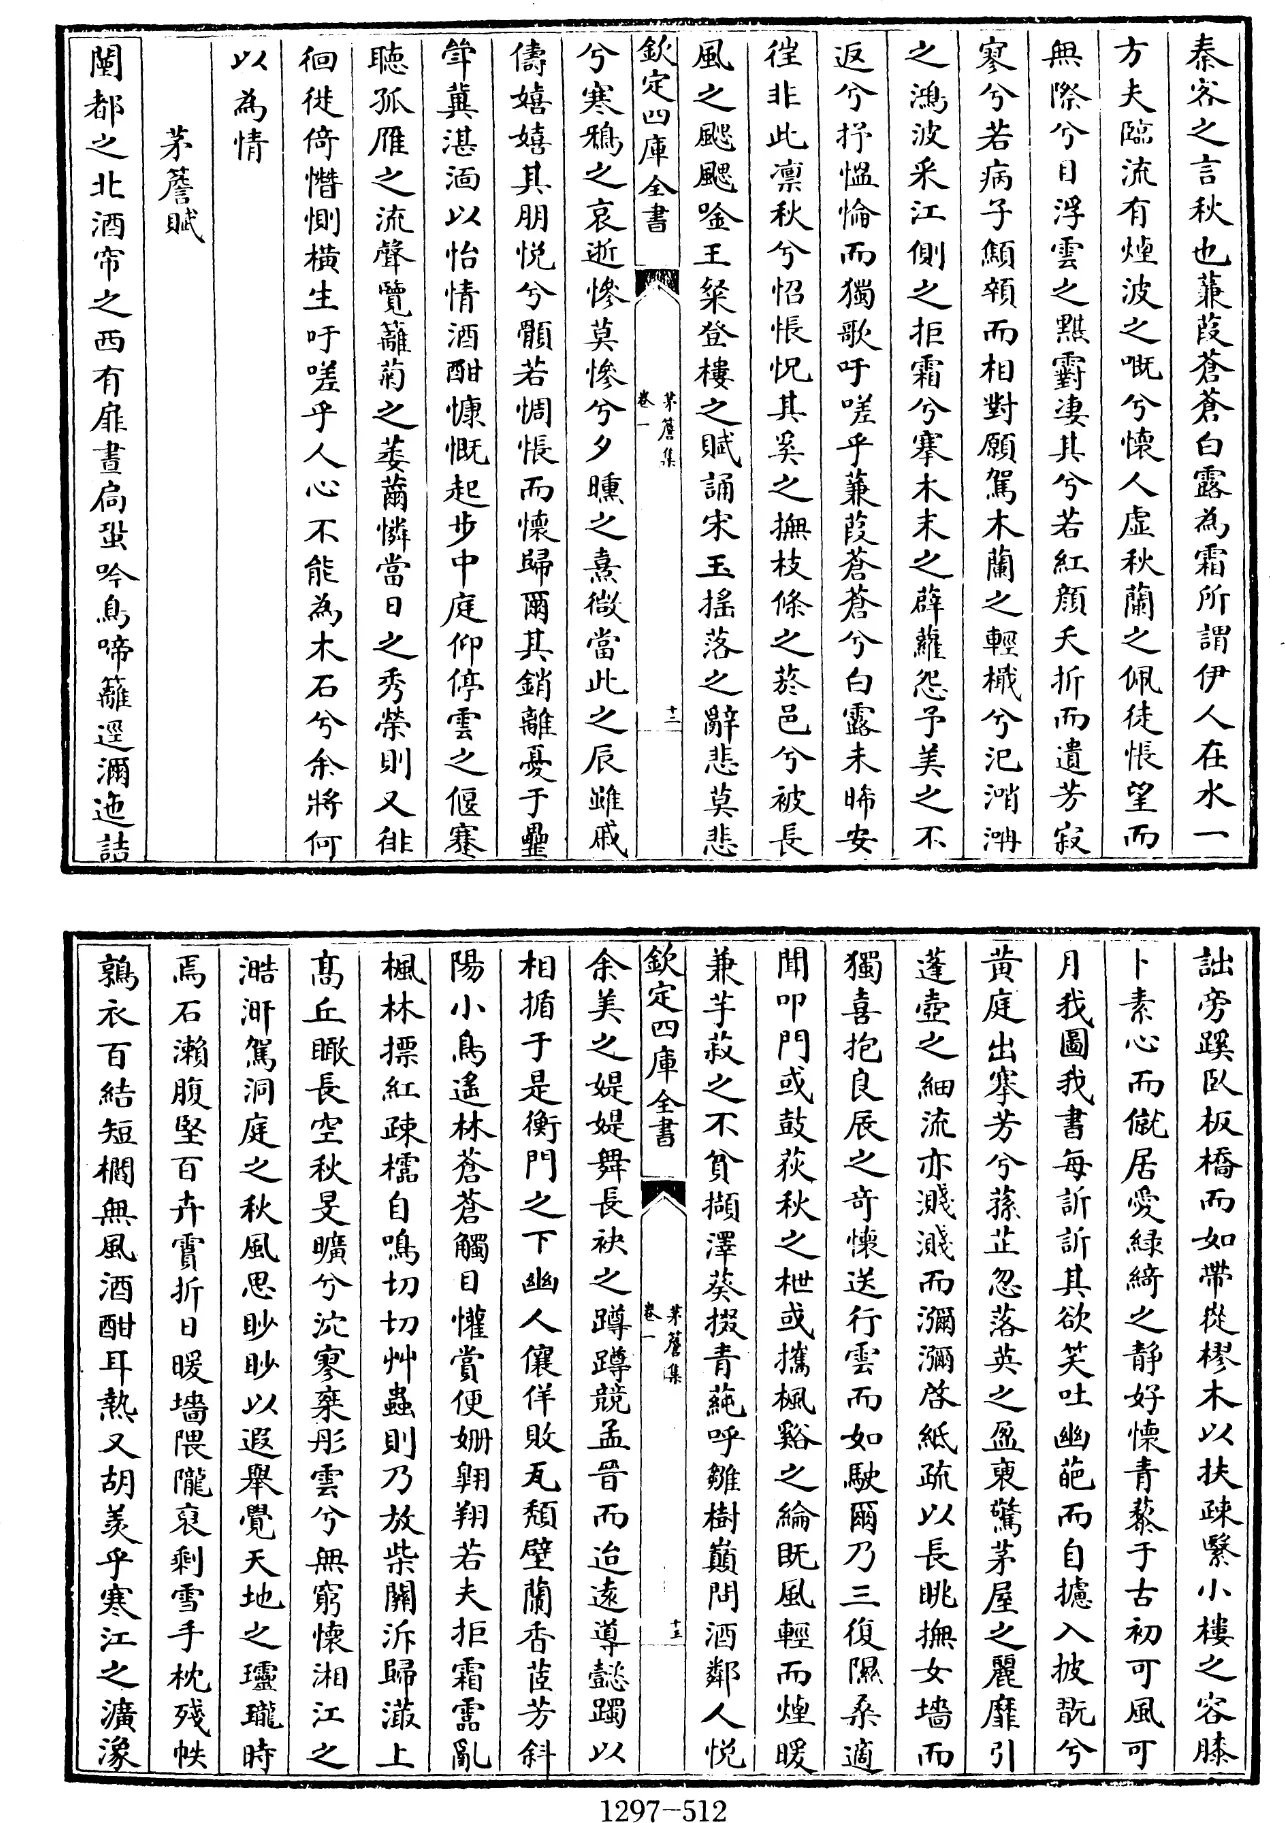 秦客之言秋也蒹葭蒼蒼白露為霜所謂伊人在水一
方夫臨流有煙波之嘅兮懷人虛秋蘭之佩徒悵望而
無際兮目浮雲之黮霨凄其兮若紅顔夭折而遺芳寂
寥兮若病子顑頷而相對願駕木蘭之輕檝兮汜淌洅
之鴻波采江側之拒霜兮搴木末之薜蘿怨予美之不
返兮抒慍惀而獨歌吁嗟乎蒹葭蒼蒼兮白露未晞安
徃非此凛秋兮怊悵怳其奚之撫枝條之菸邑兮被長
風之颸颸唫王粲登樓之賦誦宋玉揺落之辭悲莫悲
欽定四庫全書
茅簷集
卷一
十二
兮寒鴉之哀逝慘莫慘兮夕曛之熹微當此之辰雖戚
儔嬉嬉其朋悦兮顝若惆悵而懷歸爾其銷離憂于罍
斝冀湛湎以怡情酒酣慷慨起步中庭仰停雲之偃蹇
聽孤雁之流聲覽籬菊之萎薾憐當日之秀榮則又徘
徊徙倚憯惻橫生吁嗟乎人心不能為木石兮余將何
以為情
茅簷賦
闉都之北酒帘之西有扉晝扃蛩吟鳥啼籬逕瀰迤詰
詘旁蹊臥板橋而如帶從樛木以扶疎緊小樓之容膝
卜素心而僦居愛緑綺之静好懐青藜于古初可風可
月我圖我書每訢訢其欲笑吐幽葩而自攄入披翫兮
黄庭出搴芳兮蓀芷忽落英之盈裏驚茅屋之麗靡引
蓬壺之細流亦濺濺而瀰瀰啓紙疏以長眺撫女墻而
獨喜抱良辰之奇懐送行雲而如駛爾乃三復隰桑適
聞叩門或鼓荻秋之枻或攜楓谿之綸既風輕而煙暖
兼芋菽之不貧擷澤葵掇青蒓呼雛樹巔問酒鄰人悦
欽定四庫全書
茅簷集
卷一
十三
余美之媞媞舞長袂之蹲蹲競孟晉而迨遠導懿躅以
相揗于是衡門之下幽人儴佯敗瓦頹壁蘭香茝芳斜
陽小鳥遙林蒼蒼觸目懽賞便姍翺翔若夫拒霜霑亂
楓林摽紅疎櫺自鳴切切艸蟲則乃放柴關泝歸潨上
髙丘瞰長空秋旻曠兮沆寥棄彤雲兮無窮懷湘江之
澔汗駕洞庭之秋風思眇眇以遐舉覺天地之瓏瓏時
焉石瀨腹堅百卉實折日暖墻隈隴裒剩雪手枕殘帙
鶉衣百結短櫩無風酒酣耳熱又胡羨乎寒江之瀇瀁
1297-512